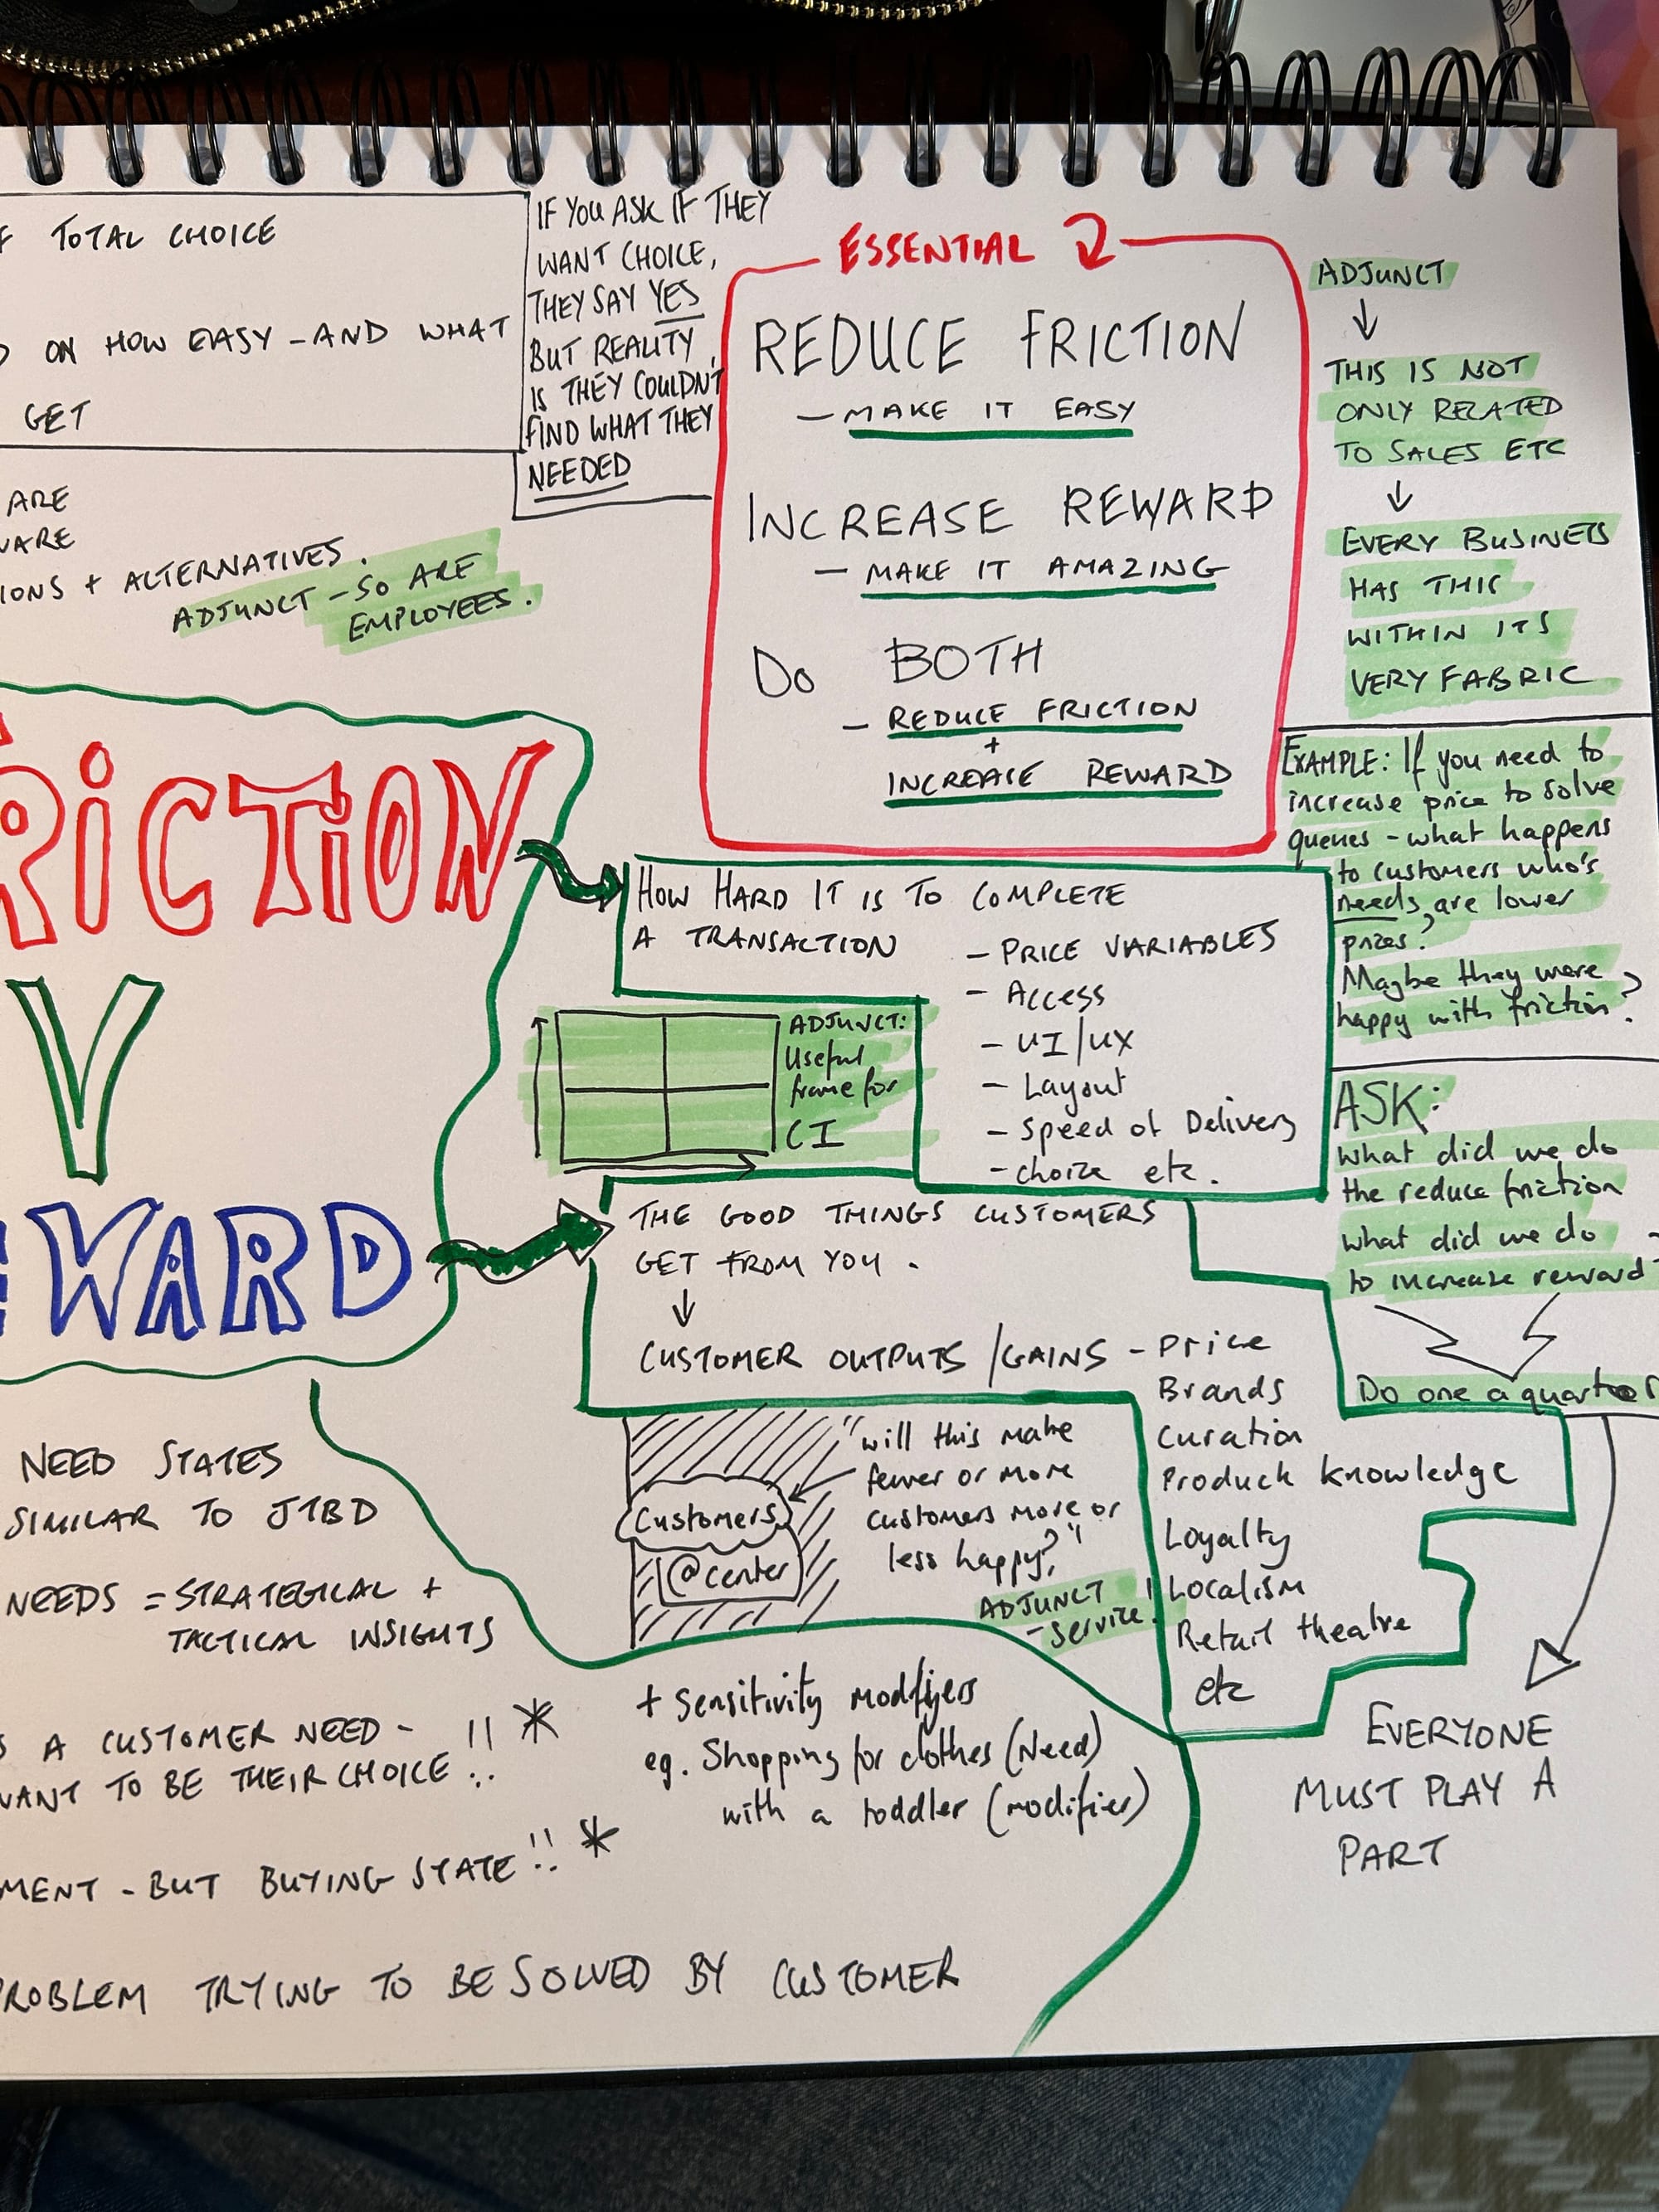 TOTAL CHOICE
ON HOW EASY - AND WHAT
GET
IF YOU ASK IF THEY
WANT CHOICE,
THEY SAY YES
BUT REALITY
IS THEY COULDN'T
FIND WHAT THEY
NEEDED
ARE
IONS + ALTERNATIVES.
ADJUNCT - SO ARE
EMPLOYEES.
ESSENTIAL
REDUCE FRICTION
- MAKE IT EASY
INCREASE REWARD
- MAKE IT AMAZING
DO BOTH
- REDUCE FRICTION
+
INCREASE REWARD
ADJUNCT
THIS IS NOT
ONLY RELATED
TO SALES ETC
EVERY BUSINESS
HAS THIS
WITHIN ITS
VERY FABRIC
EXAMPLE: If you need to
increase price to solve
queues - what happens
to customers who's
needs are lower
prizes?
Maybe they were
happy with friction?
ASK:
What did we do
the reduce friction
what did we do
to increase reward?
Do one a quarter
EVERYONE
MUST PLAY A
PART
RICTION
V
WARD
HOW HARD IT IS TO COMPLETE
A TRANSACTION
- PRICE VARIABLES
- Access
- UI/UX
- Layout
- Speed of Delivery
- choice etc.
ADJUNCT:
Useful
frame for
CI
THE GOOD THINGS CUSTOMERS
GET FROM YOU.
CUSTOMER OUTPUTS / GAINS - Price
Brands
Curation
Product knowledge
Loyalty
Localism
Retail theatre
etc
"will this make
fewer or more
customers more or
less happy?"
Customers
@center
ADJUNCT
- service!
NEED STATES
SIMILAR TO JTBD
NEEDS = STRATEGICAL +
TACTICAL INSIGHTS
S A CUSTOMER NEED - !! *
WANT TO BE THEIR CHOICE !!
MENT - BUT BUYING STATE !! *
+ Sensitivity modifyers
eg. Shopping for clothes (Need)
with a toddler (modifier)
PROBLEM TRYING TO BE SOLVED BY CUSTOMER